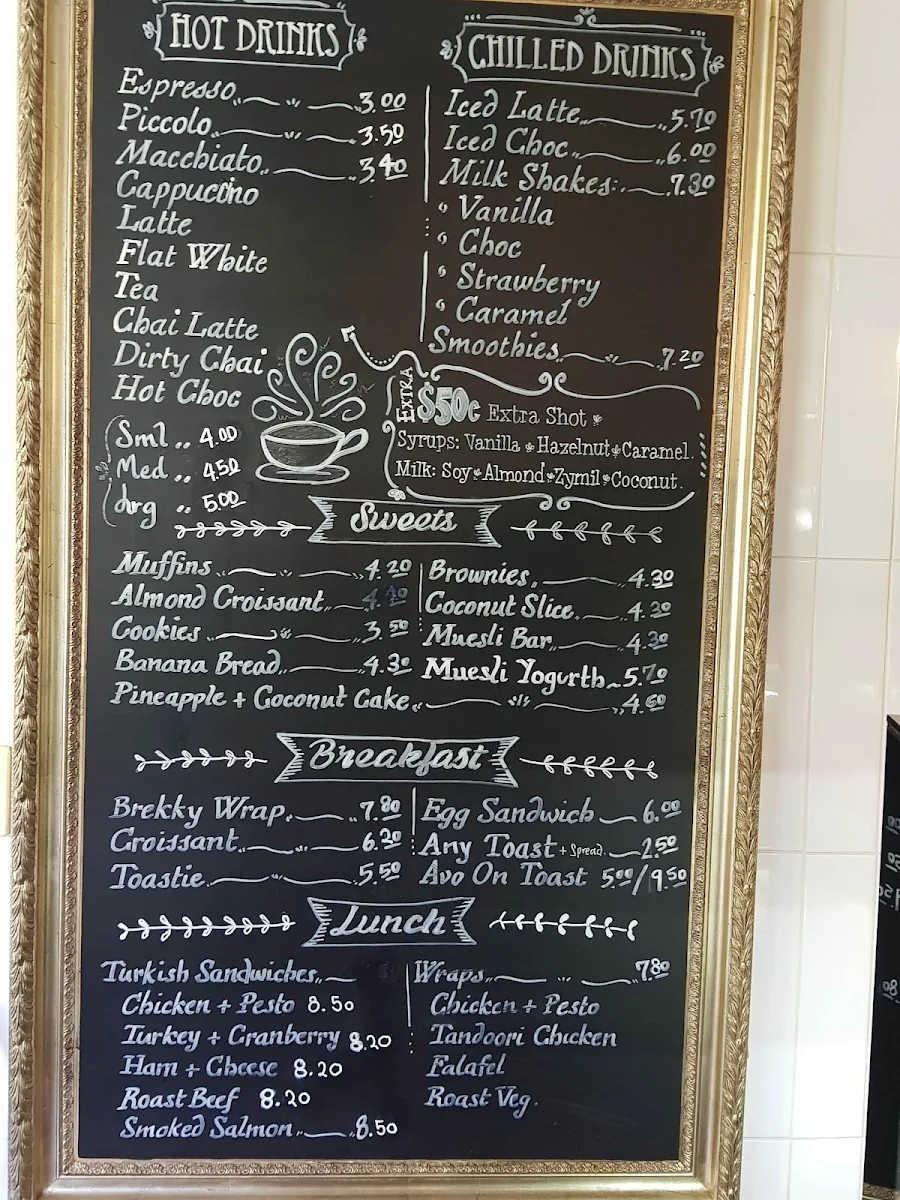 HOT DRINKS
Espresso 3.00
Piccolo 3.50
Macchiato 3.40
Cappuccino
Latte
Flat White
Tea
Chai Latte
Dirty Chai
Hot Choc
Sml .. 4.00
Med .. 4.50
Lrg .. 5.00
CHILLED DRINKS
Iced Latte 5.70
Iced Choc 6.00
Milk Shakes: 7.30
Vanilla
Choc
Strawberry
Caramel
Smoothies 7.20
EXTRA
$50c Extra Shot
Syrups: Vanilla Hazelnut Caramel.
Milk: Soy Almond Zymil Coconut.
Sweets
Muffins 4.20
Almond Croissant
Cookies 3.50
Banana Bread 4.30
Pineapple + Coconut Cake 4.60
Brownies 4.30
Coconut Slice 4.30
Muesli Bar 4.30
Muesli Yogurth 5.70
Breakfast
Brekky Wrap 7.80
Croissant 6.30
Toastie 5.50
Egg Sandwich 6.00
Any Toast + Spread 2.50
Avo On Toast 5.00/9.50
Lunch
Turkish Sandwiches
Chicken + Pesto 8.50
Turkey + Cranberry 8.20
Ham + Cheese 8.20
Roast Beef 8.20
Smoked Salmon 8.50
Wraps 7.80
Chicken + Pesto
Tandoori Chicken
Falafel
Roast Veg.